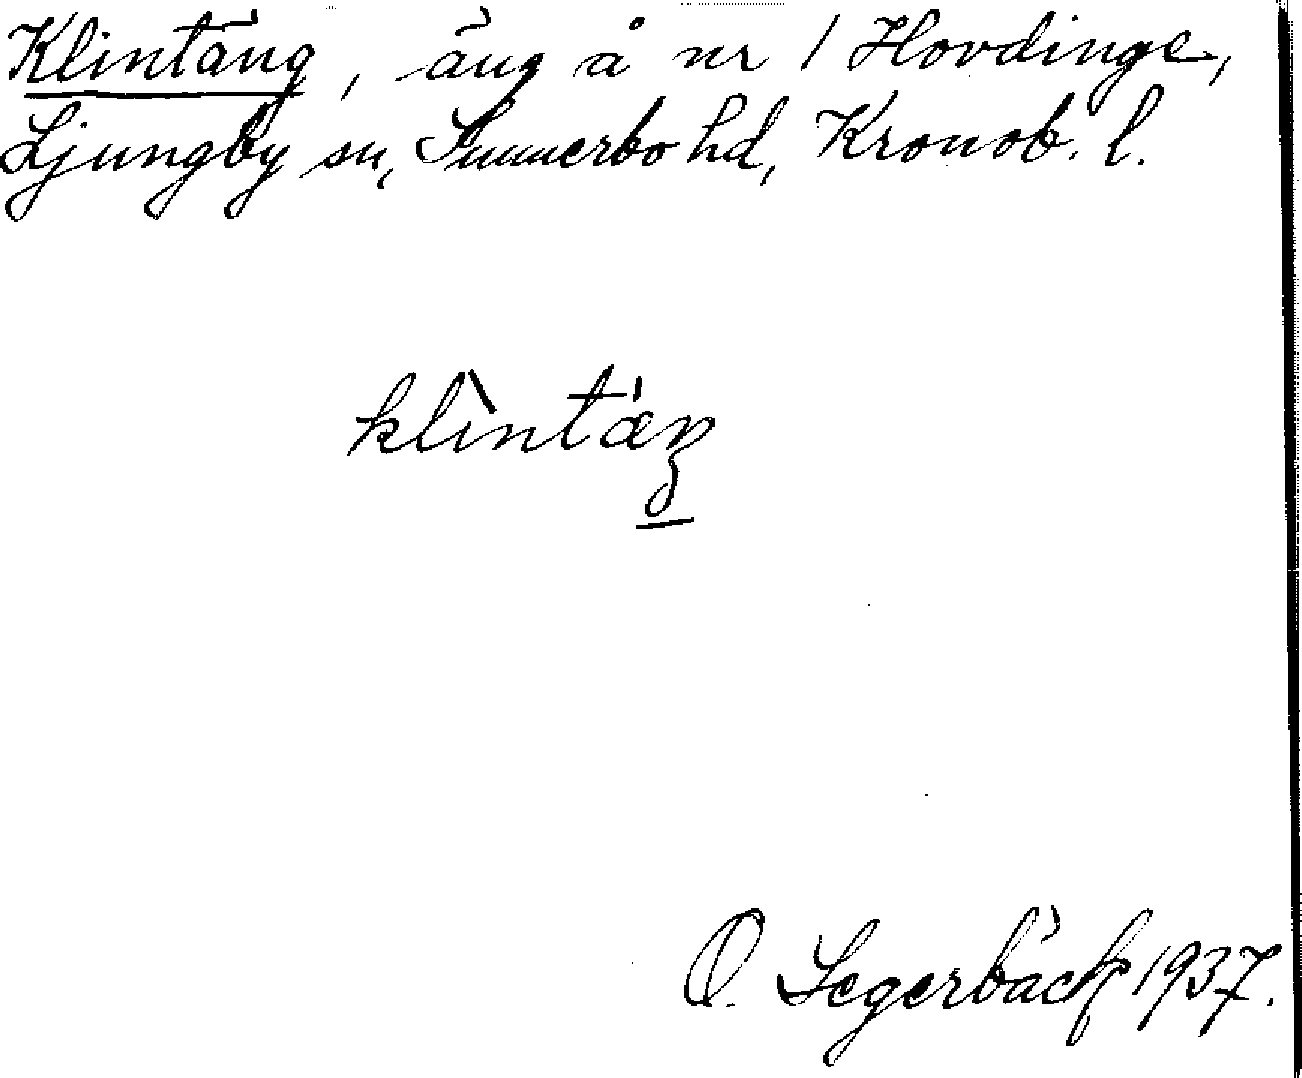 Klintäng, äng å nr 1 Hovdinge,
Ljungby sn, Sunnerbo hd, Kronob. l.
klìntǽŋ
O. Segerbäck 1937.